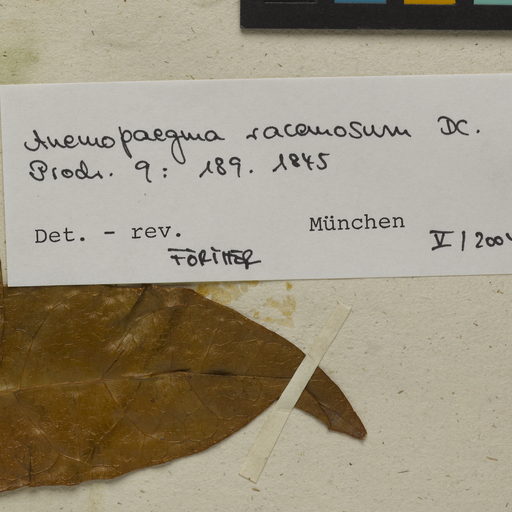 Anemopaegma racemosum DC.
Prodr. 9: 189. 1845
Det. - rev. München
FÖRTHER V/2004